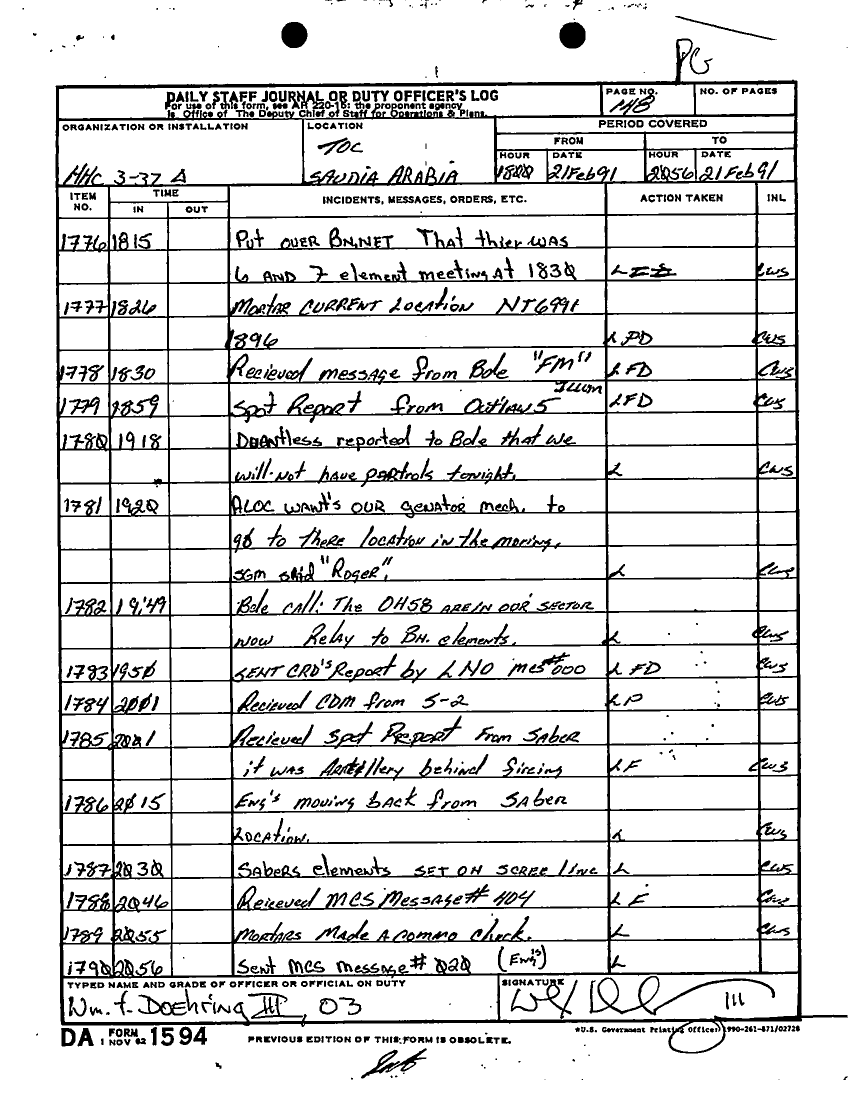 PG
DAILY STAFF JOURNAL OR DUTY OFFICER'S LOG
For use of this form, see AR 220-15; the proponent agency
is Office of The Deputy Chief of Staff for Operations & Plans.
PAGE NO.
148
NO. OF PAGES
ORGANIZATION OR INSTALLATION
HHC 3-37 A
LOCATION
TOC
SAUDIA ARABIA
PERIOD COVERED
FROM
TO
HOUR
1800
DATE
21 Feb 91
HOUR
2056
DATE
21 Feb 91
ITEM NO.
TIME
IN
OUT
INCIDENTS, MESSAGES, ORDERS, ETC.
ACTION TAKEN
INL
1776 1815 Put over BN.NET That thier was
6 AND 7 element meeting At 1830 L CWS
1777 1826 Mortar CURRENT Location NT6991
1896 L PD CWS
1778 1830 Recieved message from Bole "FM" LFD CWS
1779 1859 Spot Report from Outlaw 5 LFD CWS
1780 1918 Dauntless reported to Bole that we
will not have partrols tonight. L CWS
1781 1920 ALOC WANT'S OUR genator mech. to
go to there location in the moring,
SGM said "Roger". L CWS
1782 19:49 Bole call: The OH58 ARE IN OUR SECTOR
now Relay to BN. elements. L CWS
1783 1950 SENT CRD'S Report by LNO mes#000 L FD CWS
1784 2001 Recieved CDM from S-2 LP CWS
1785 2001 Recieved Spot Report From SABER
it was Artillery behind fireing LF CWS
1786 2015 Eng's moving back from SABER
LOCATION. L CWS
1787 2030 SABERS elements SET ON SCREE line L CWS
1788 2046 Reiceved MCS Message # 404 L F CWS
1789 2055 MORTARS Made A Commo Check. L CWS
1790 2056 Sent MCS message # 020 (Eng's) L
TYPED NAME AND GRADE OF OFFICER OR OFFICIAL ON DUTY
Wm. F. Doehring III, O3
SIGNATURE
III
DA FORM 1 NOV 62 1594
PREVIOUS EDITION OF THIS FORM IS OBSOLETE.
*U.S. Government Printing Office: 1990-261-871/02728